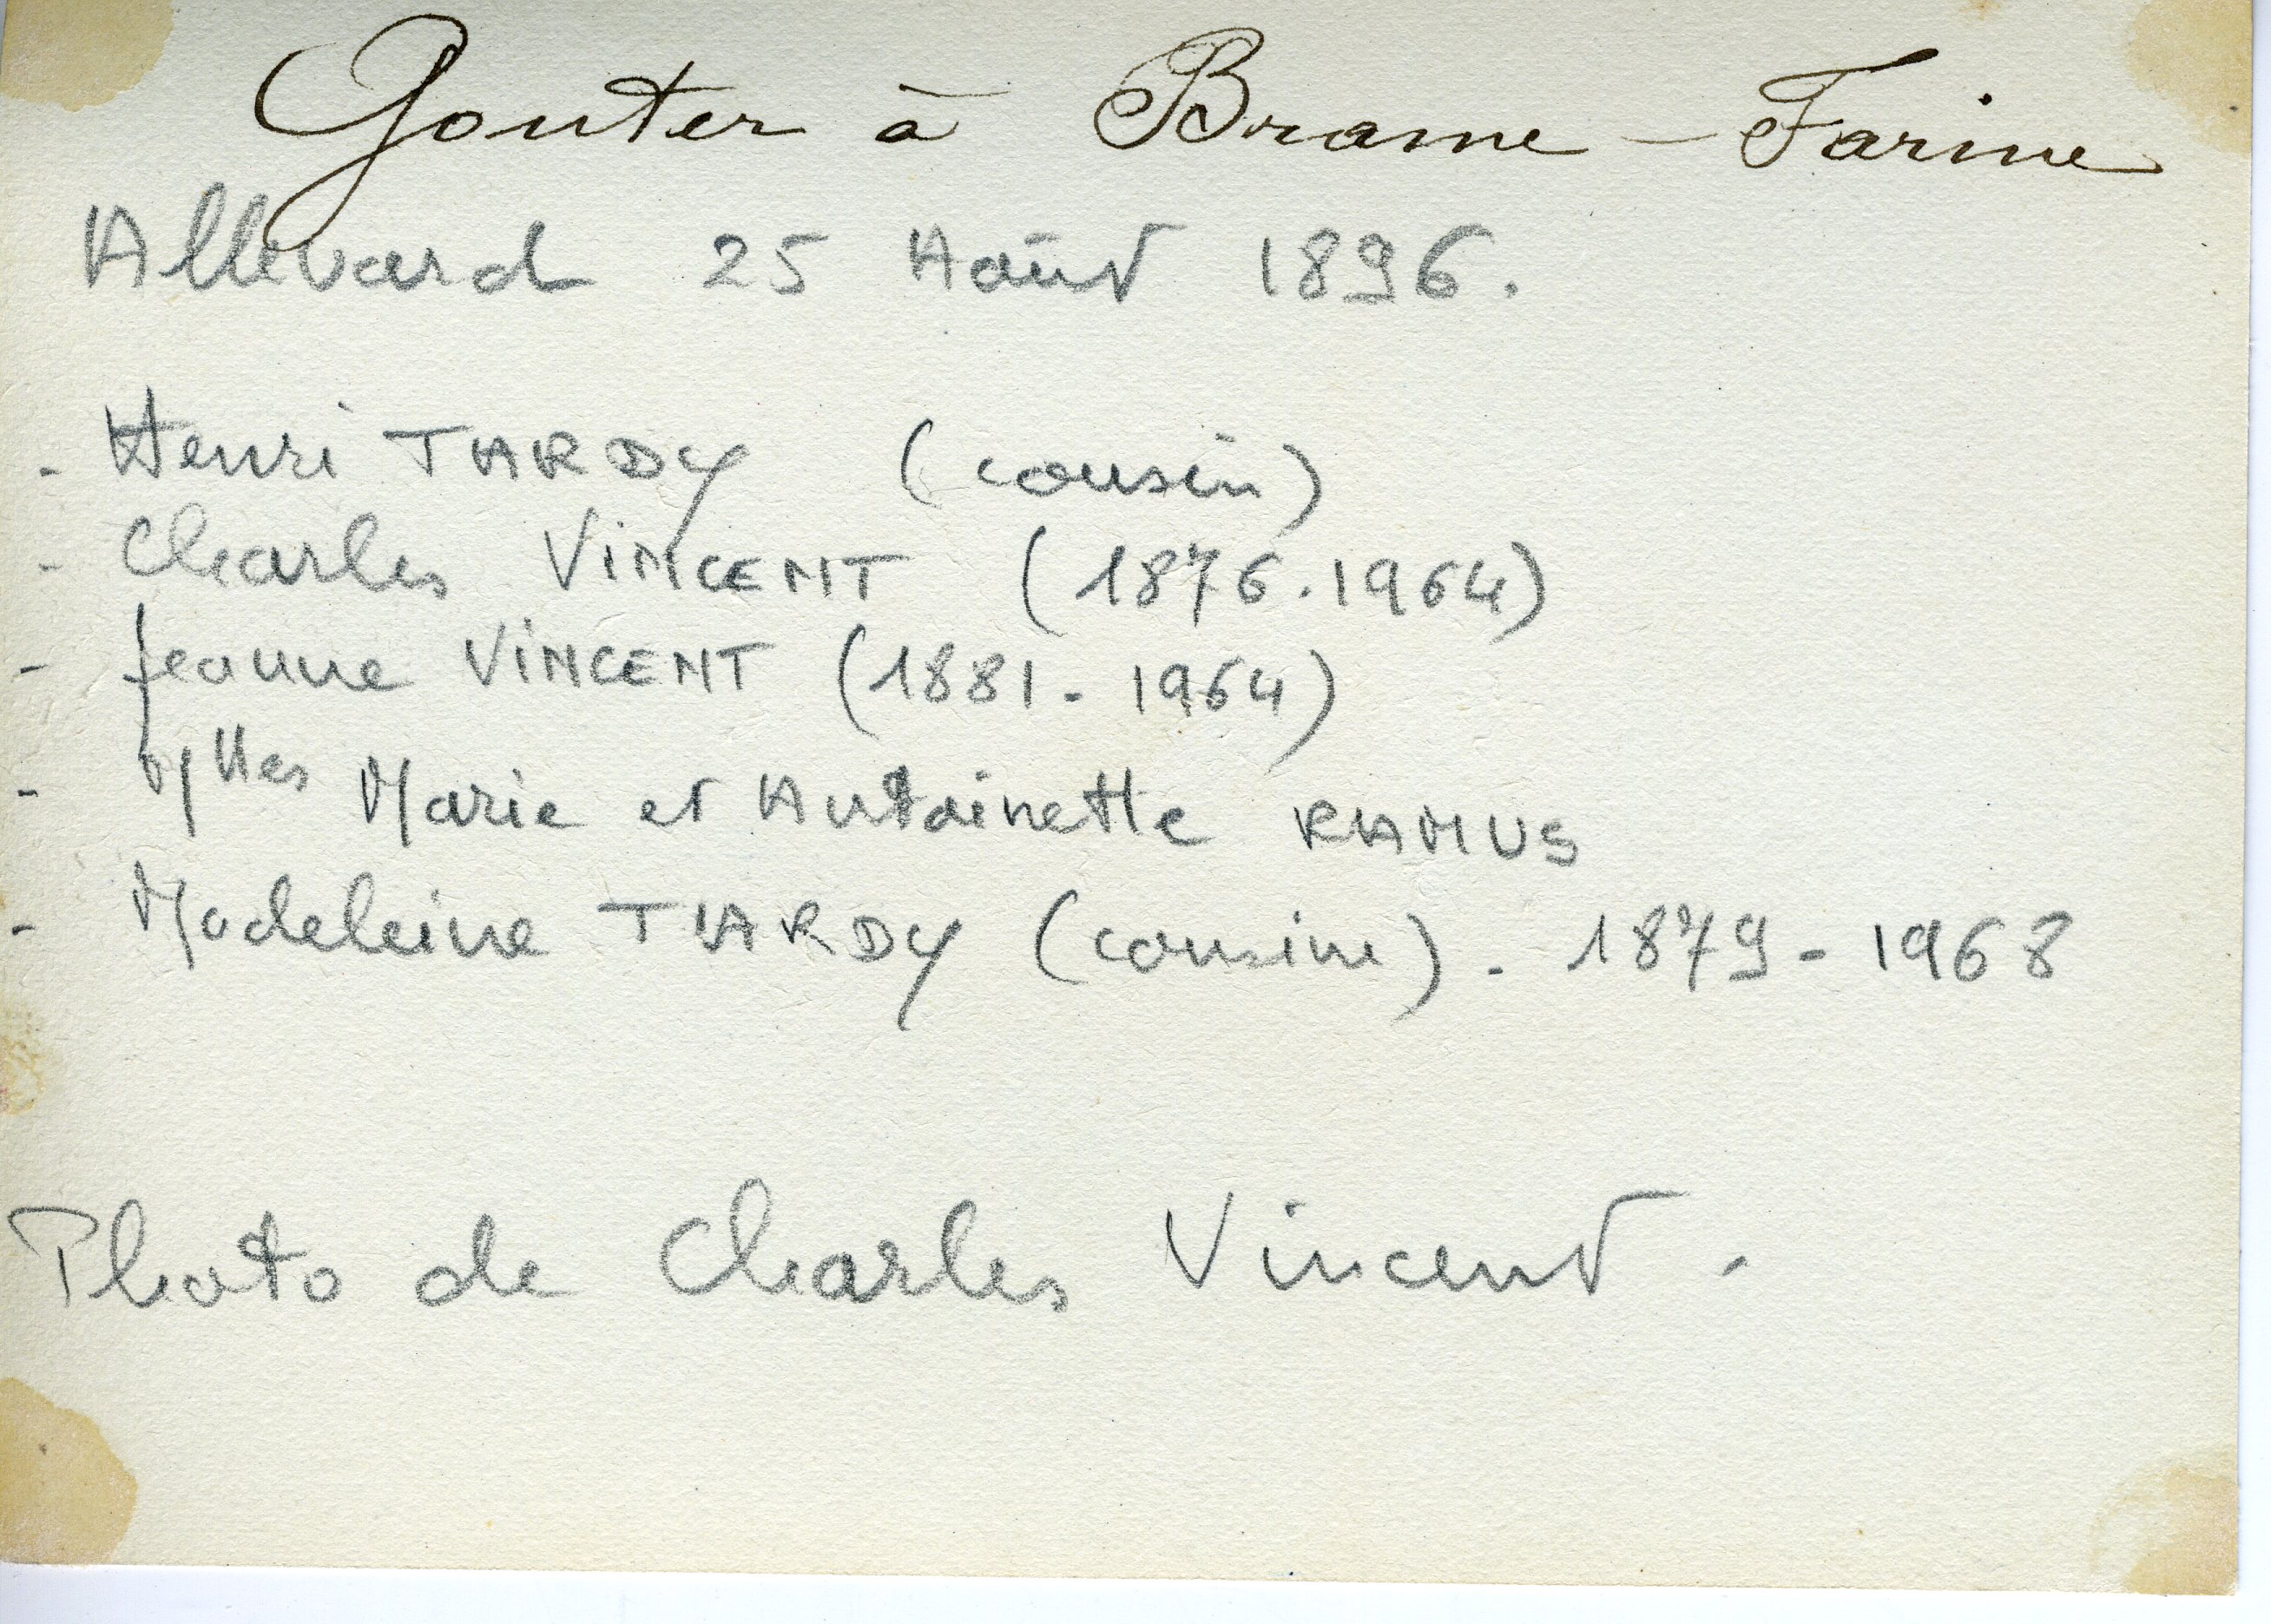 Gouter à Brame-Farine
Allevard 25 Août 1896.
- Henri TARDY (cousin)
- Charles VINCENT (1876.1964)
- Jeanne VINCENT (1881-1964)
- Mlles Marie et Antoinette RAMUS
- Madeleine TARDY (cousine). 1879-1968
Photo de Charles Vincent.